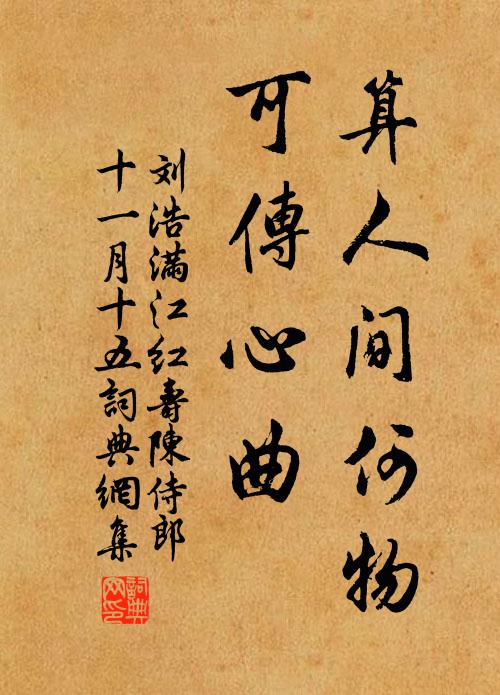 算人间何物
可傳心曲
刘浩满江红壽陳侍郎
十一月十五詞典網集
詞典
网印